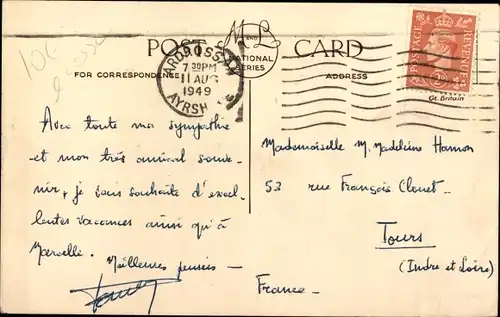 106
POST CARD
M AND L
NATIONAL SERIES
FOR CORRESPONDENCE
ADDRESS
ARDROSSAN
7 30PM
11 AUG
1949
AYRSH
POSTAGE REVENUE
Gt. Britain
Avec toute ma sympathie
et mon très amical souve-
nir, je vous souhaite d'excel-
lentes vacances ainsi qu'à
Marcelle. Meilleures pensées —
Mademoiselle M. Madeleine Hamon
53 rue François Clouet -
Tours
(Indre et Loire)
France -